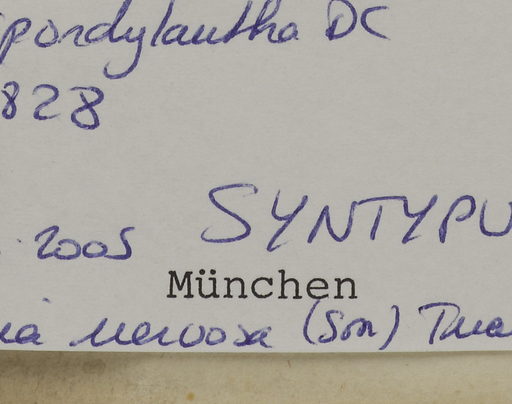 spondylantha DC
828
2005 SYNTYPU
München
nervosa (Son) Tria